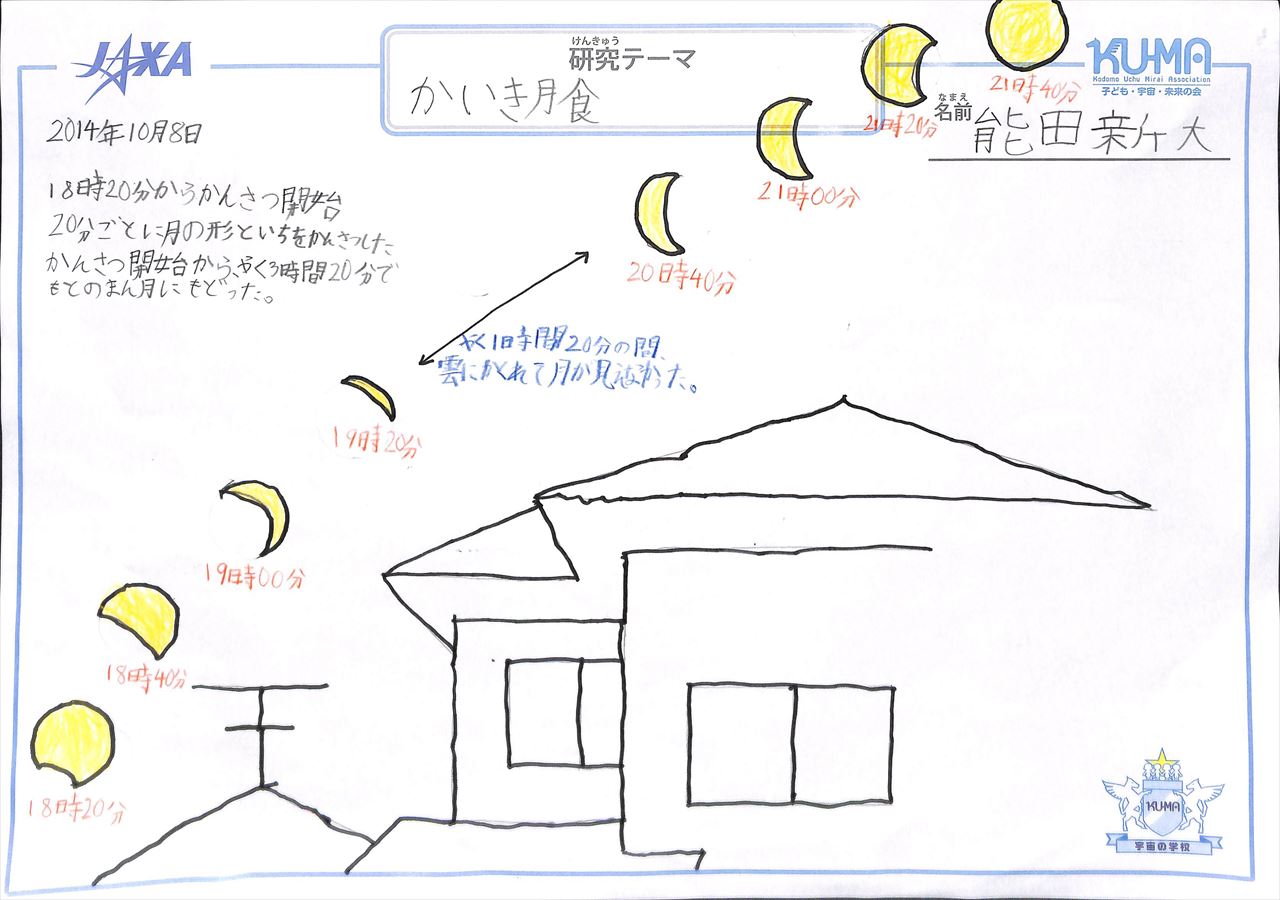 JAXA
けんきゅう
研究テーマ
かいき月食
KU-MA
Kodomo Uchu Mirai Association
子ども・宇宙・未来の会
なまえ
名前
能田新大
2014年10月8日
18時20分からかんさつ開始
20分ごとに月の形といちをかんさつした
かんさつ開始から、やく3時間20分で
もとのまん月にもどった。
21時40分
21時20分
21時00分
20時40分
やく1時間20分の間、
雲にかくれて月が見えなかった。
19時20分
19時00分
18時40分
18時20分
KU-MA
宇宙の学校